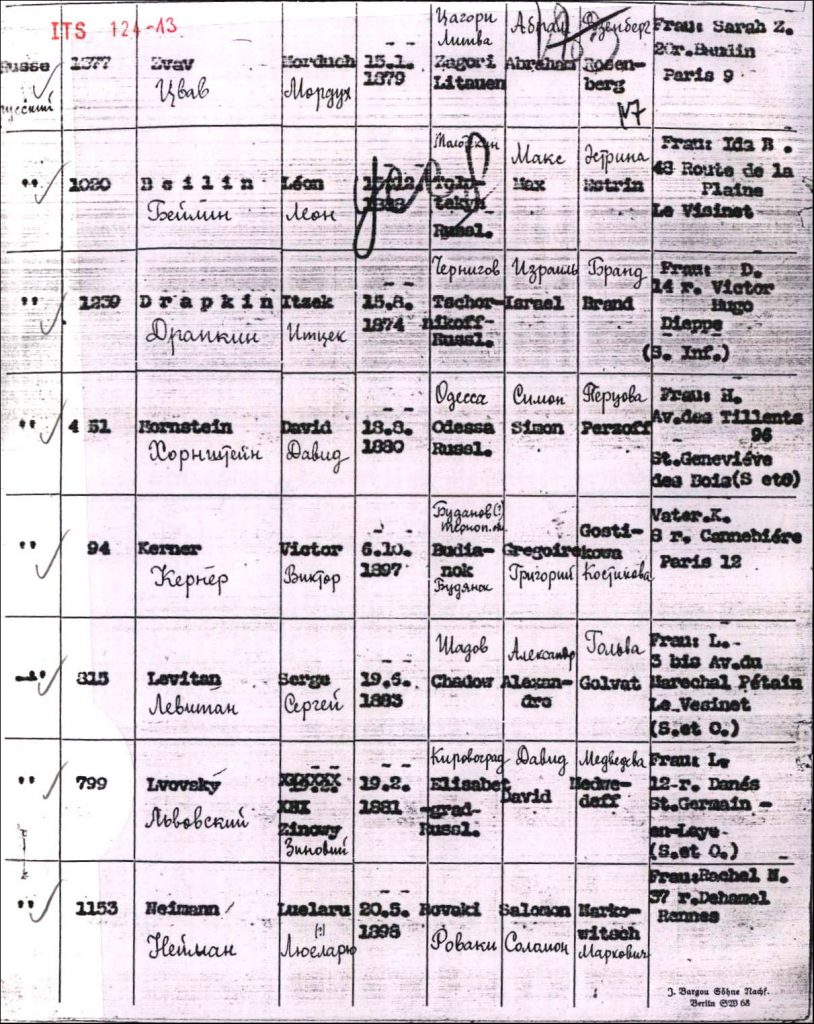 ITS 124-13
Russe 1377 Zvav Morduch 15.1. 1879 Zagori Litauen Abraham Rosen- berg Frau: Sarah Z.
20r. Paris 9
русский Цвав Мордух Цагори Литва Абрам
" 1020 Beilin Léon Russl. Max Estrin Frau: Ida B.
48 Route de la
Plaine
Le Visinet
Бейлин Леон Макс Эстрина
" 1239 Drapkin Itzek 15.8. 1874 Tschor- nikoff- Russl. Israel Brand Frau: D.
14 r. Victor
Hugo
Dieppe
(S. Inf.)
Драпкин Итцек Чернигов Израиль Бранд
" 4 51 Hornstein David 18.8. 1880 Odessa Russl. Simon Perzoff Frau: H.
Av.des Tillents
96
St.Geneviéve
des Bois(S etO)
Хорнштейн Давид Одесса Симон Перцова
" 94 Kerner Victor 6.10. 1897 Budia- nok Gregoire Gosti- kowa Vater.K.
8 r. Cannebiére
Paris 12
Кернер Виктор Будянск Григорий Костикова
" 815 Levitan Serge 19.6. 1883 Chadow Alexan- dre Golvat Frau: L.
3 bis Av.du
Marechal Pétain
Le Vesinet
(S.et O.)
Левитан Сергей Шадов Александр Гольва
" 799 Lvovský Zinowy 19.2. 1881 Elisabet -grad- Russl. David Medwe- deff Frau: L.
12-r. Danés
St.Germain -
en-Laye-
(S.et O.)
Львовский Зиновий Кировоград Давид Медведева
" 1153 Neimann Luelaru 20.5. 1898 Rovski Salomon Marko- witsch Frau:Rachel N.
37 r.Dehamel
Rennes
Нейман Люеларю [?] Роваки Соломон Маркович
J. Bargou Söhne Nachf.
Berlin SW 68